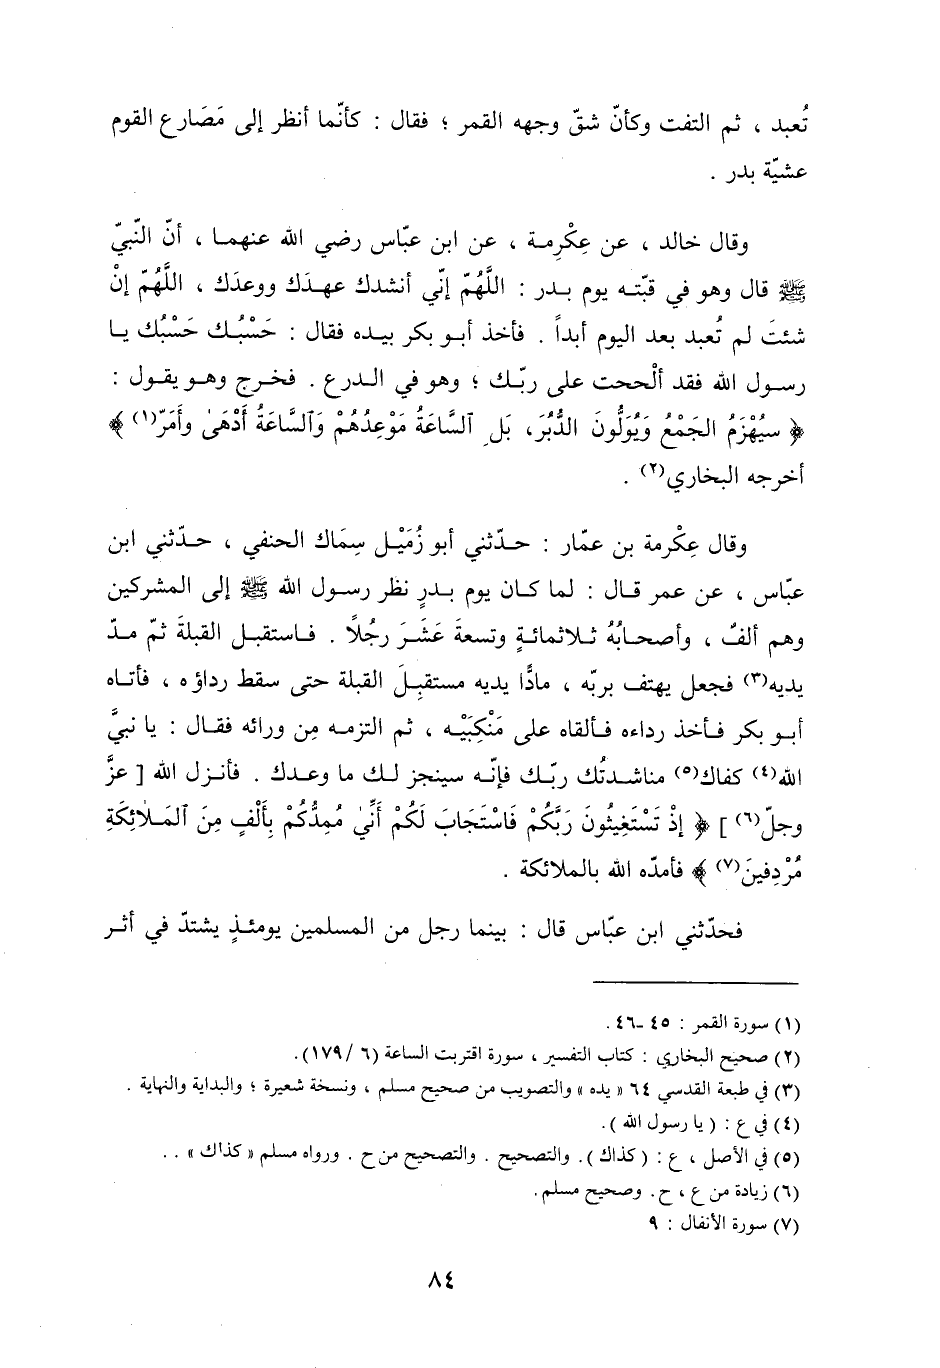 تُعبد ، ثم التفت وكأنّ شقّ وجهه القمر ؛ فقال : كأنّما أنظر إلى مَصَارع القوم
عشيّة بدر .
وقال خالد ، عن عِكْرِمة ، عن ابن عبّاس رضي الله عنهما ، أنّ النّبيّ
ﷺ قال وهو في قبّته يوم بدر : اللَّهُمّ إنّي أنشدك عهدَك ووعدَك ، اللَّهُمّ إنْ
شئتَ لم تُعبد بعد اليوم أبداً . فأخذ أبو بكر بيده فقال : حَسْبُك حَسْبُك يا
رسول الله فقد ألْححت على ربّك ؛ وهو في الدرع . فخرج وهو يقول :
﴿ سيُهْزَمُ الجَمْعُ وَيُوَلُّونَ الدُّبُرَ، بَلِ ٱلسَّاعَةُ مَوْعِدُهُمْ وَٱلسَّاعَةُ أَدْهَىٰ وأَمَرّ(١) ﴾
أخرجه البخاري(٢) .
وقال عِكْرمة بن عمّار : حدّثني أبو زُمَيْل سِمَاك الحنفي ، حدّثني ابن
عبّاس ، عن عمر قال : لما كان يوم بدرٍ نظر رسول الله ﷺ إلى المشركين
وهم ألفٌ ، وأصحابُهُ ثلاثمائةٍ وتسعةَ عَشَرَ رجُلاً . فاستقبل القبلةَ ثمّ مدّ
يديه(٣) فجعل يهتف بربّه ، مادًّا يديه مستقبِلَ القبلة حتى سقط رداؤه ، فأتاه
أبو بكر فأخذ رداءه فألقاه على مَنْكِبَيْه ، ثم التزمه مِن ورائه فقال : يا نبيَّ
الله(٤) كفاك(٥) مناشدتُك ربّك فإنّه سينجز لك ما وعدك . فأنزل الله [ عزَّ
وجلّ(٦) ] ﴿ إِذْ تَسْتَغِيثُونَ رَبَّكُمْ فَاسْتَجَابَ لَكُمْ أَنِّي مُمِدُّكُمْ بِأَلْفٍ مِنَ ٱلمَلَائِكَةِ
مُرْدِفينَ(٧) ﴾ فأمدّه الله بالملائكة .
فحدّثني ابن عبّاس قال : بينما رجل من المسلمين يومئذٍ يشتدّ في أثر
(١) سورة القمر : ٤٥ -٤٦ .
(٢) صحيح البخاري : كتاب التفسير ، سورة اقتربت الساعة (٦ / ١٧٩).
(٣) في طبعة القدسي ٦٤ « يده » والتصويب من صحيح مسلم ، ونسخة شعيرة ؛ والبداية والنهاية .
(٤) في ع : ( يا رسول الله ).
(٥) في الأصل ، ع : ( كذاك ). والتصحيح . والتصحيح من ح . ورواه مسلم « كذاك » . .
(٦) زيادة من ع ، ح . وصحيح مسلم .
(٧) سورة الأنفال : ٩
٨٤